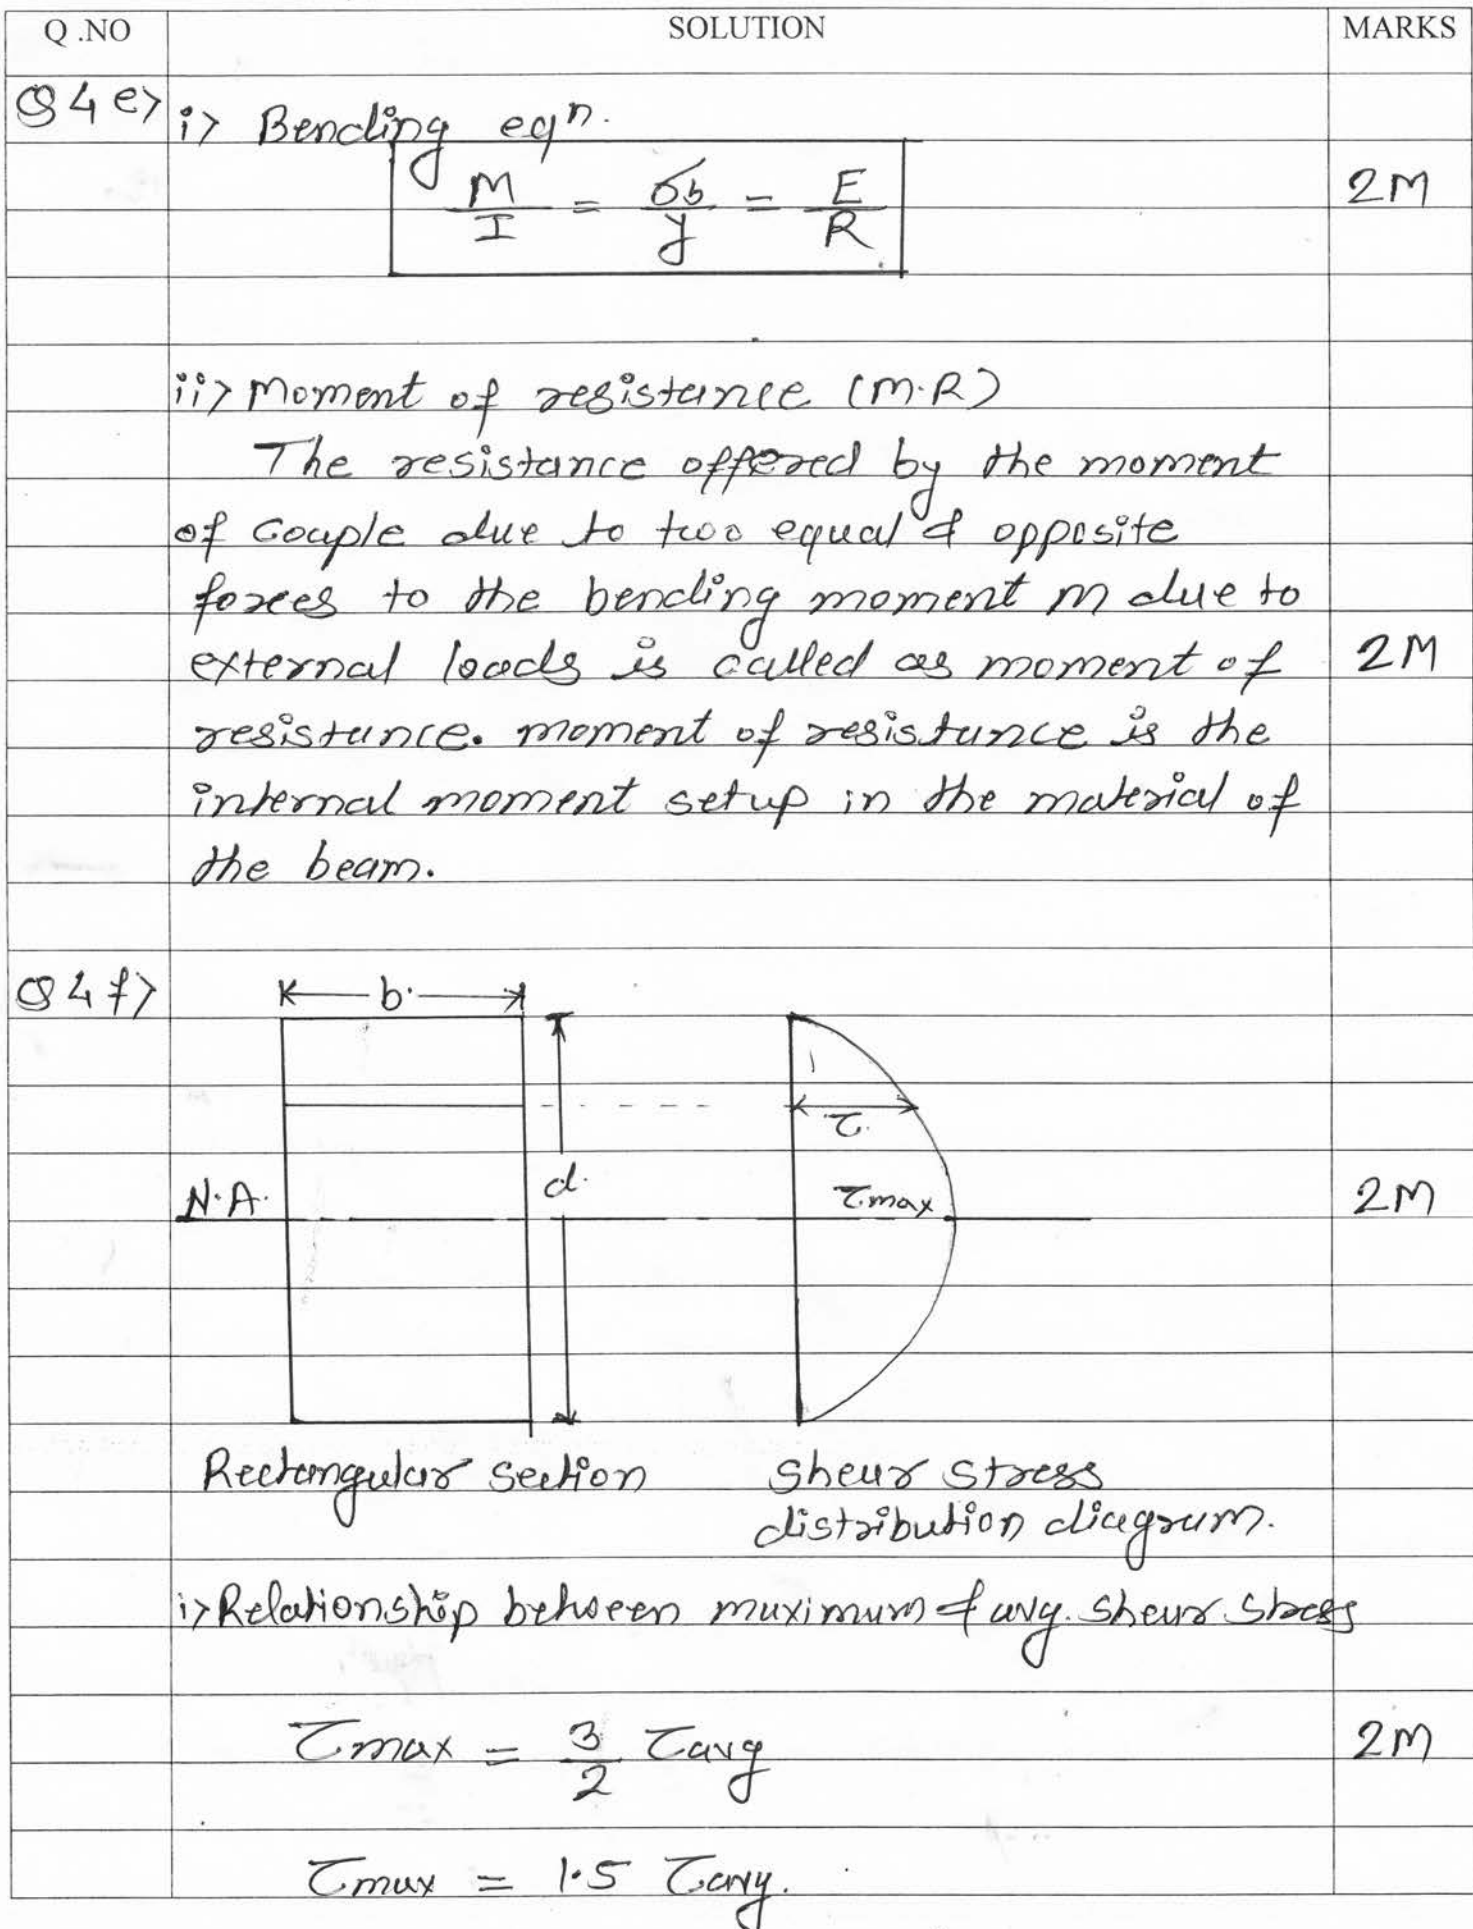 Q .NO SOLUTION MARKS
Q 4 e> i> Bending eqn.
M/I = σb/y = E/R 2M
ii> Moment of resistance (M.R)
The resistance offered by the moment
of couple due to two equal & opposite
forces to the bending moment M due to
external loads is called as moment of 2M
resistance. moment of resistance is the
internal moment setup in the material of
the beam.
Q 4 f> b.
τ.
d.
N.A. τmax 2M
Rectangular section shear stress
distribution diagram.
i> Relationship between maximum & avg. shear stress
τmax = 3/2 τavg 2M
τmax = 1.5 τavg.